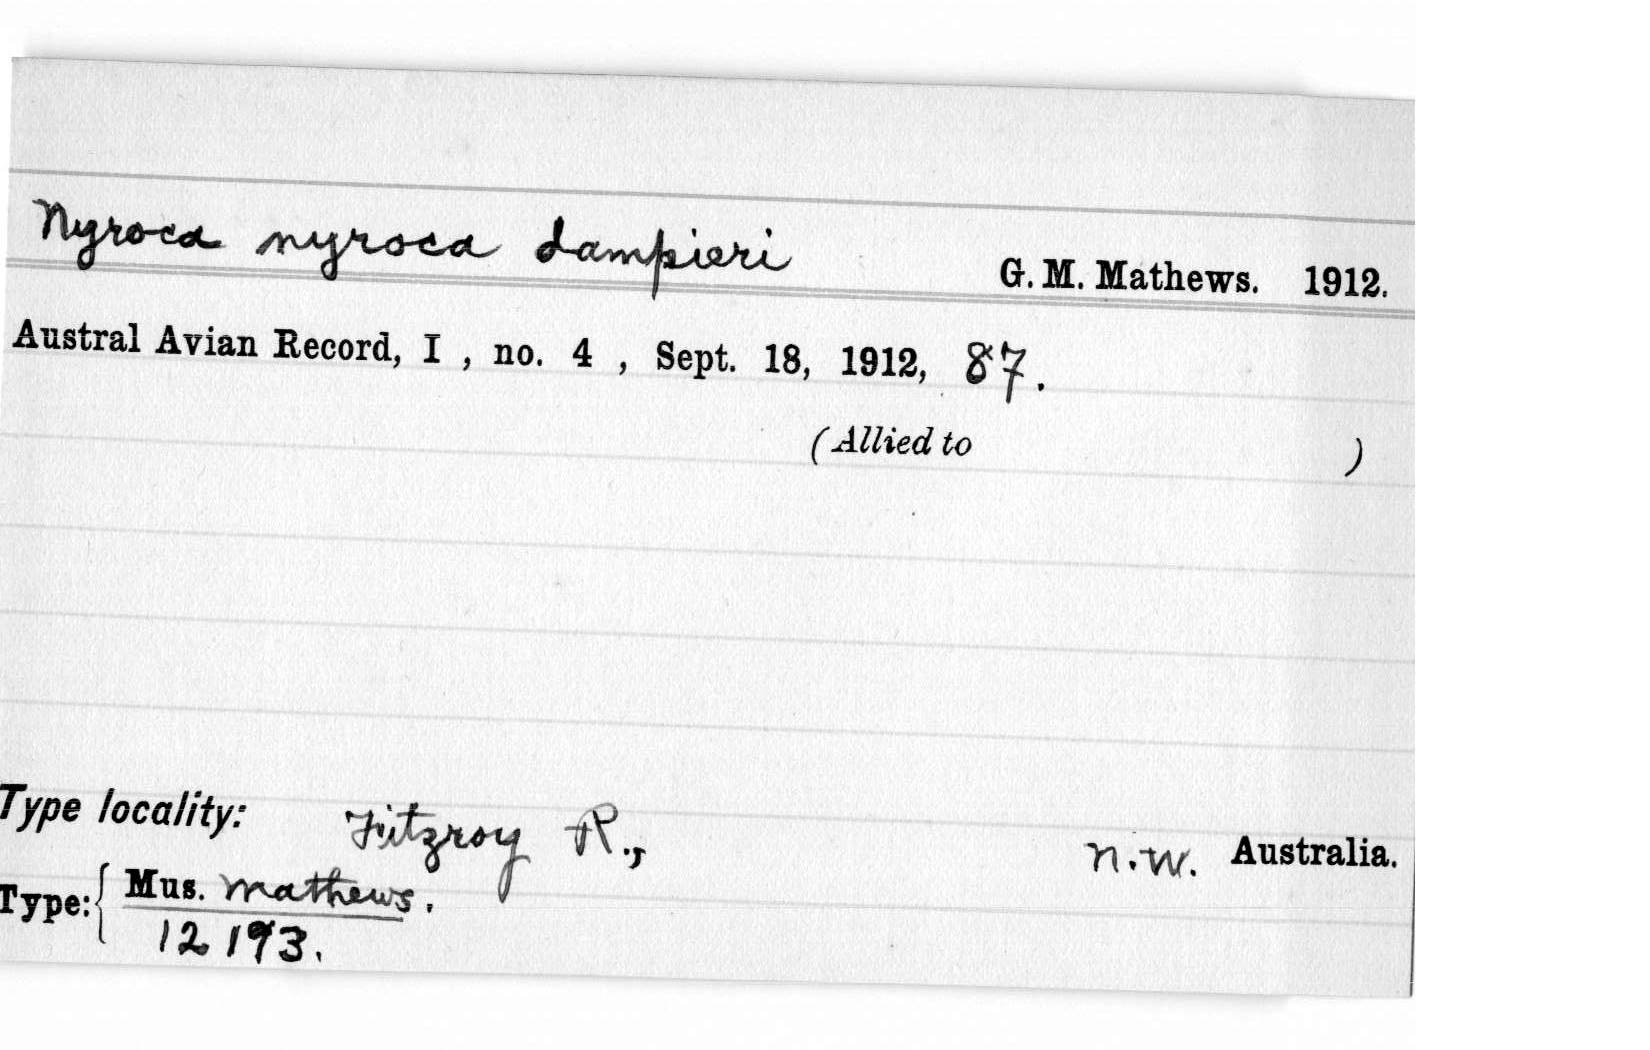 Nyroca nyroca dampieri G. M. Mathews. 1912.
Austral Avian Record, I , no. 4 , Sept. 18, 1912, 87.
(Allied to )
Type locality: Fitzroy R., N.W. Australia.
Type: { Mus. Mathews.
12193.